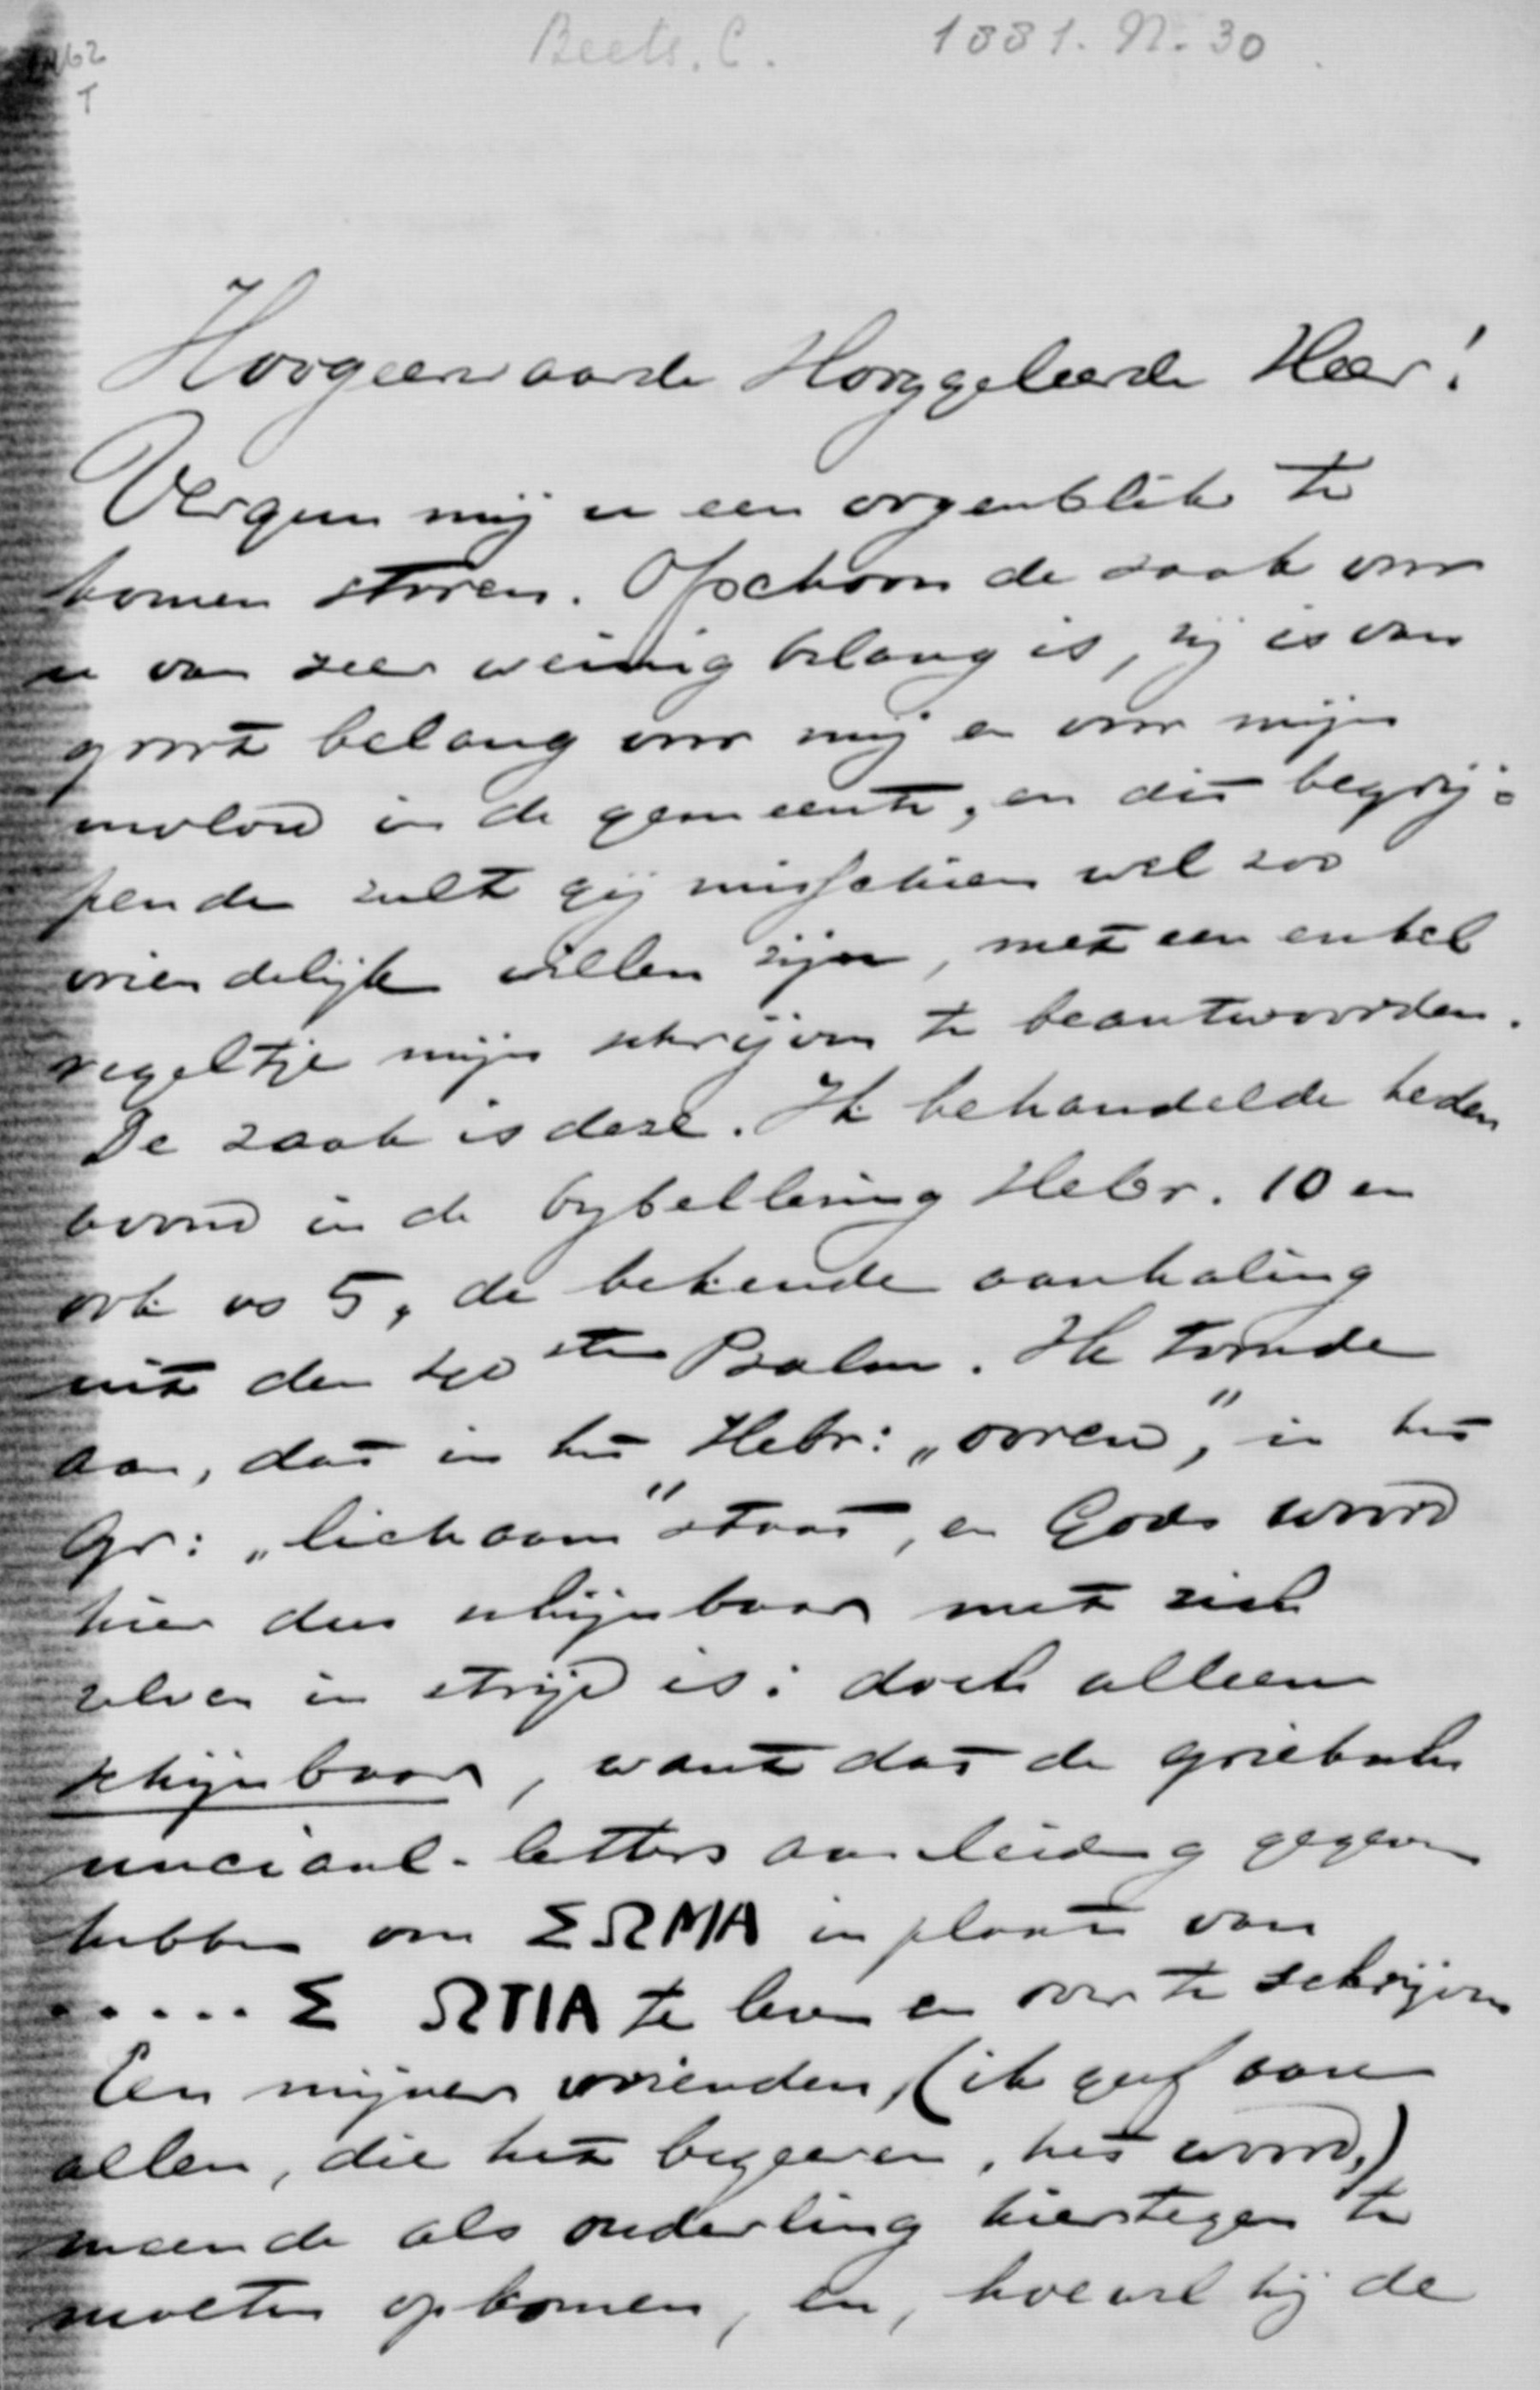 Beets. C. 1881. N. 30
62
Hoogeerwaarde Hooggeleerde Heer!
Vergun mij u een oogenblik te
komen storen. Ofschoon de zaak voor
u van zeer weinig belang is, zij is van
groot belang voor mij en voor mijn
invloed in de gemeente, en dit begrij-
pende zult gij misschien wel zoo
vriendelijk willen zijn, met een enkel
regeltje mijn schrijven te beantwoorden.
De zaak is deze. Ik behandelde heden
avond in de bybellezing Hebr. 10 en
ook vs 5, de bekende aanhaling
uit den 40sten Psalm. Ik toonde
aan, dat in het Hebr: „ooren," in het
Gr: „lichaam" staat, en Gods woord
hier dus schijnbaar met zich
zelven in strijd is: doch alleen
schijnbaar, want dat de grieksche
unciaal-letters aanleiding gegeven
hebben om ΣΩMA in plaats van
..... Σ ΩTIA te lezen en over te schrijven
Een mijner vrienden, (ik geef aan
allen, die het begeeren, het woord,)
meende als ouderling hiertegen te
moeten opkomen, en, hoewel hij de